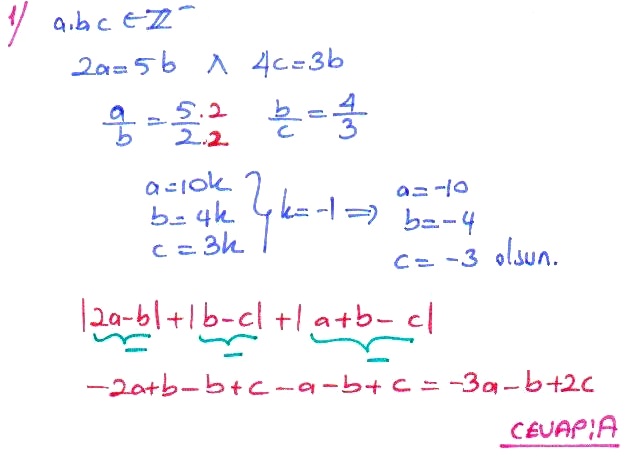 1) a.b c ∈ Z⁻
2a = 5b ∧ 4c = 3b
a/b = 5.2/2.2 b/c = 4/3
a = 10k
b = 4k
c = 3k } k = -1 ⇒ a = -10
b = -4
c = -3 olsun.
|2a-b| + |b-c| + |a+b-c|
- - -
-2a+b-b+c-a-b+c = -3a-b+2c
CEVAP: A